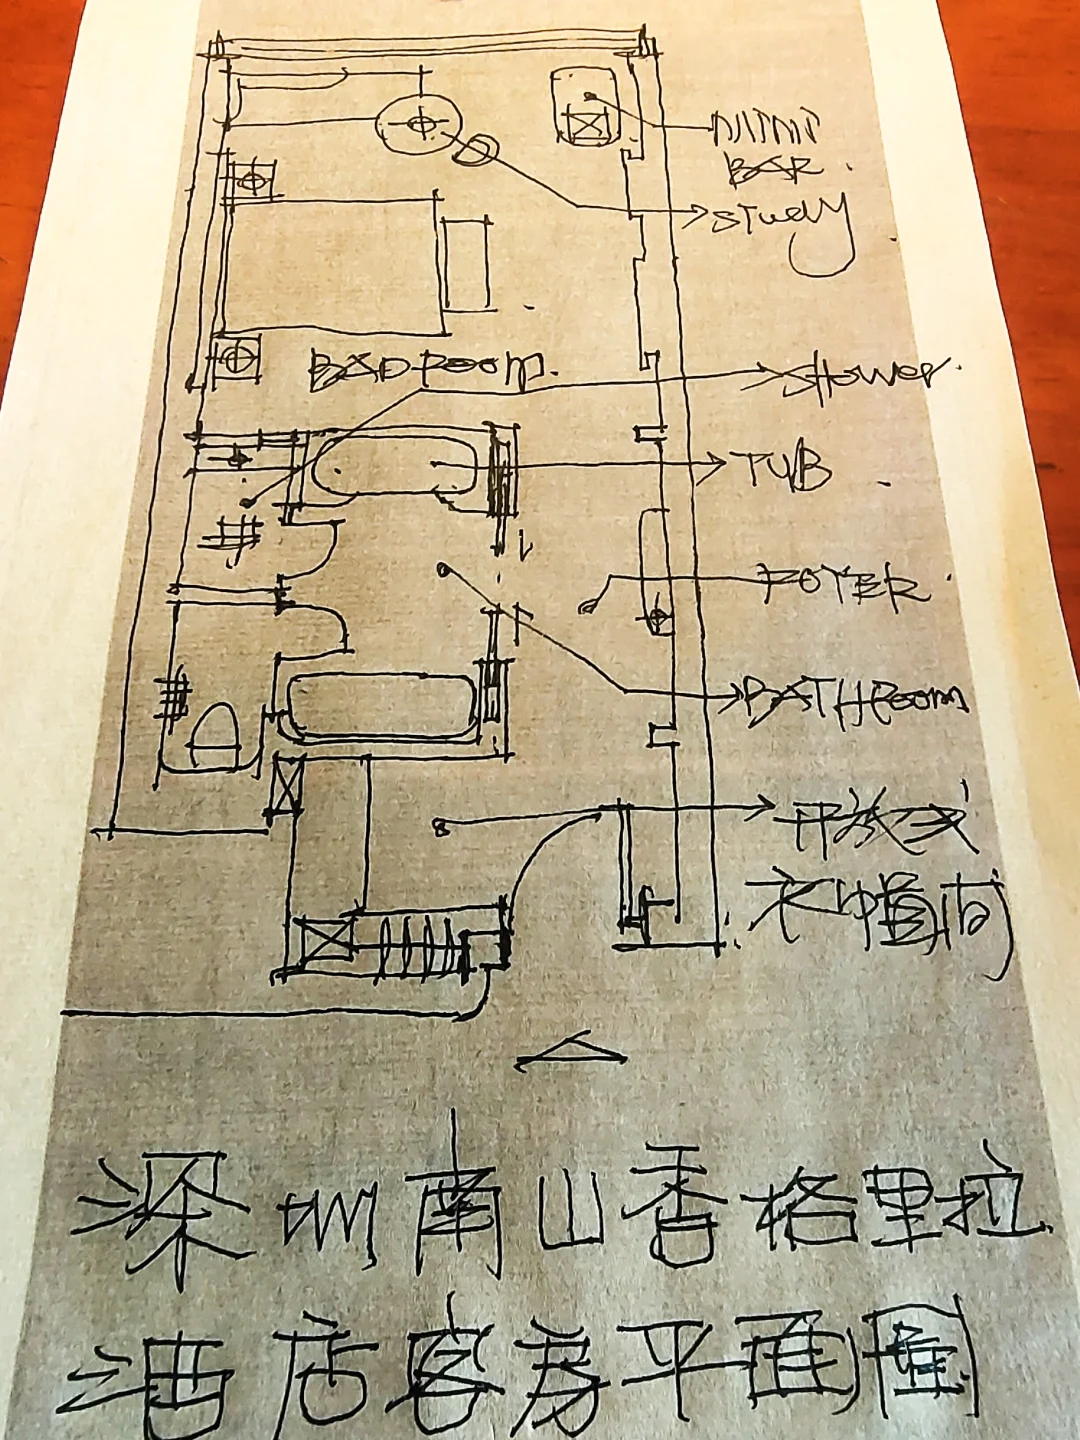 MINI
BAR.
STUDY
BAD ROOM.
SHOWER.
TUB
FOYER
BATHROOM
开放式
衣帽间
深圳南山香格里拉
酒店客房平面圖